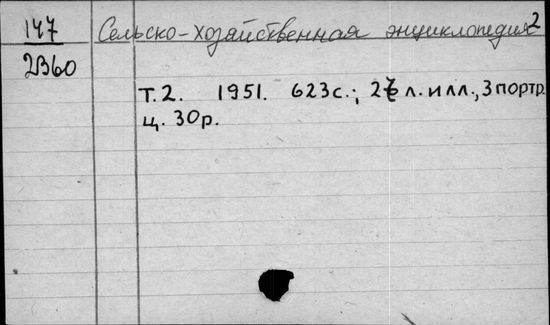 147 Сельско-хозяйственная энциклопедия 2
2В60
Т.2. 1951. 623с.; 26 л. илл., 3 портр.
ц. 30р.